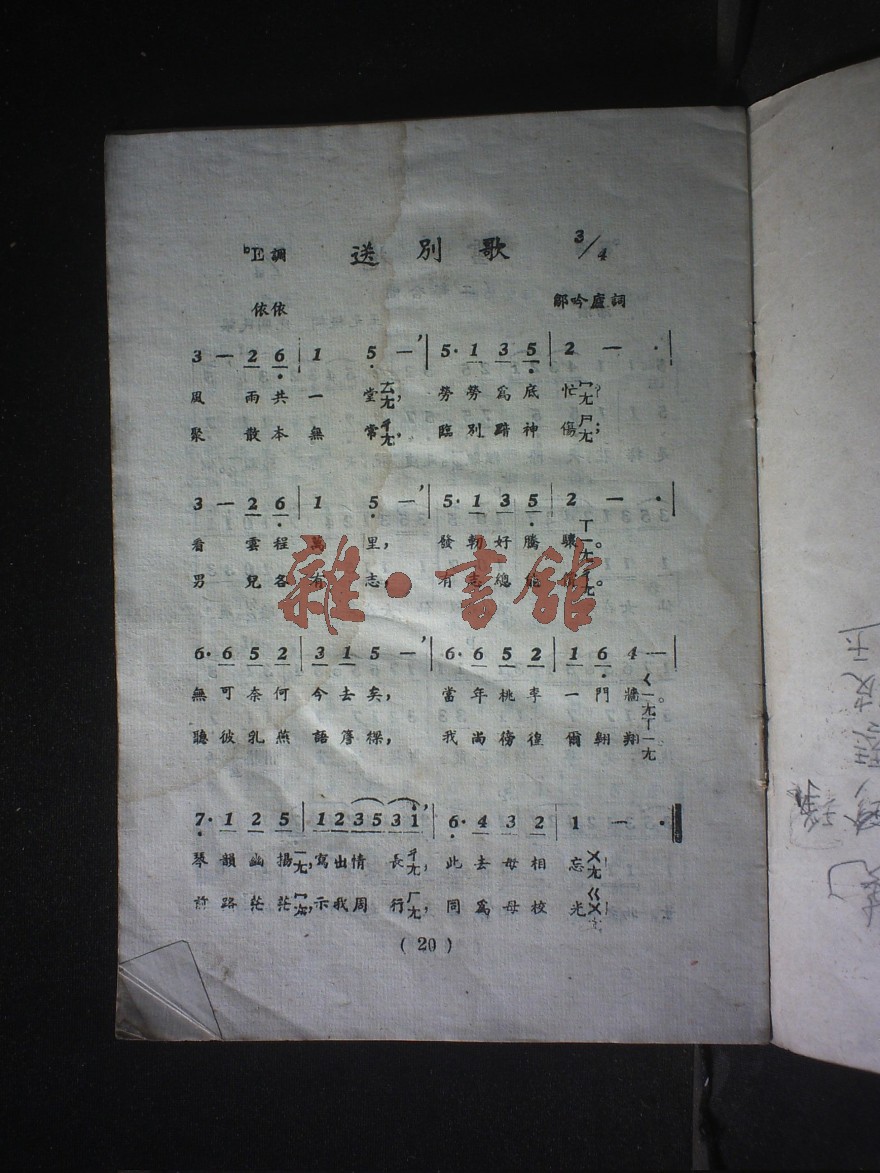 ♭E調 送別歌 3/4
依依 鄒吟廬詞
3 — 2 6 | 1 5 — ’ | 5· 1 3 5 | 2 — · |
風雨共一堂ㄊㄤ，勞勞爲底忙ㄇㄤ？
聚散本無常ㄔㄤ，臨別黯神傷ㄕㄤ；
3 — 2 6 | 1 5 — ’ | 5· 1 3 5 | 2 — · |
看雲程萬里，發軔好騰驤ㄒㄧㄤ。
男兒各有志，有志總能償ㄔㄤ。
6· 6 5 2 | 3 1 5 — ’ | 6· 6 5 2 | 1 6 4 — |
無可奈何今去矣，當年桃李一門牆ㄑㄧㄤ。
聽彼乳燕語簷，我尚徬徨爾翱翔ㄒㄧㄤ
7· 1 2 5 | 1 2 3 5 3 1 ’ | 6· 4 3 2 | 1 — ·
琴韻幽揚ㄧㄤ，寫出情長ㄔㄤ，此去毋相忘ㄨㄤ！
前路茫茫ㄇㄤ，示我周行ㄏㄤ，同爲母校光ㄍㄨㄤ！
(20)
雜·書館